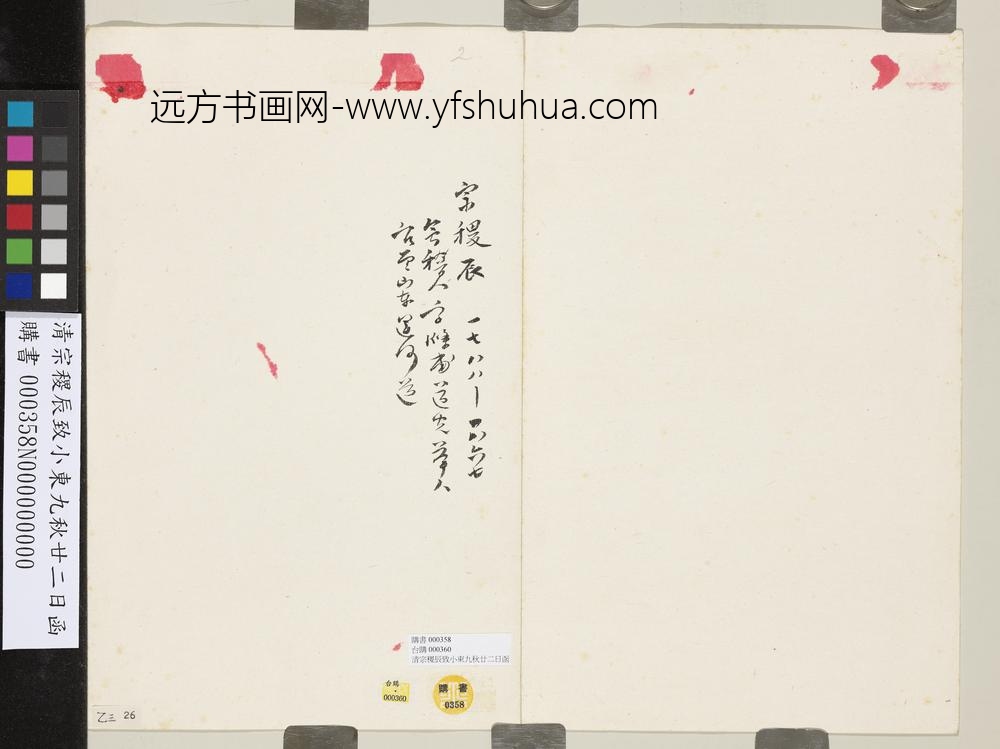 2
远方书画网-www.yfshuhua.com
宗稷辰 一七八八—一八六七
會稽人 字滌甫 道光舉人
官至山东運河道
清宗稷辰致小東九秋廿二日函
購書 000358N000000000
購書 000358
台購 000360
清宗稷辰致小東九秋廿二日函
台購
000360
購書
0358
乙三 26